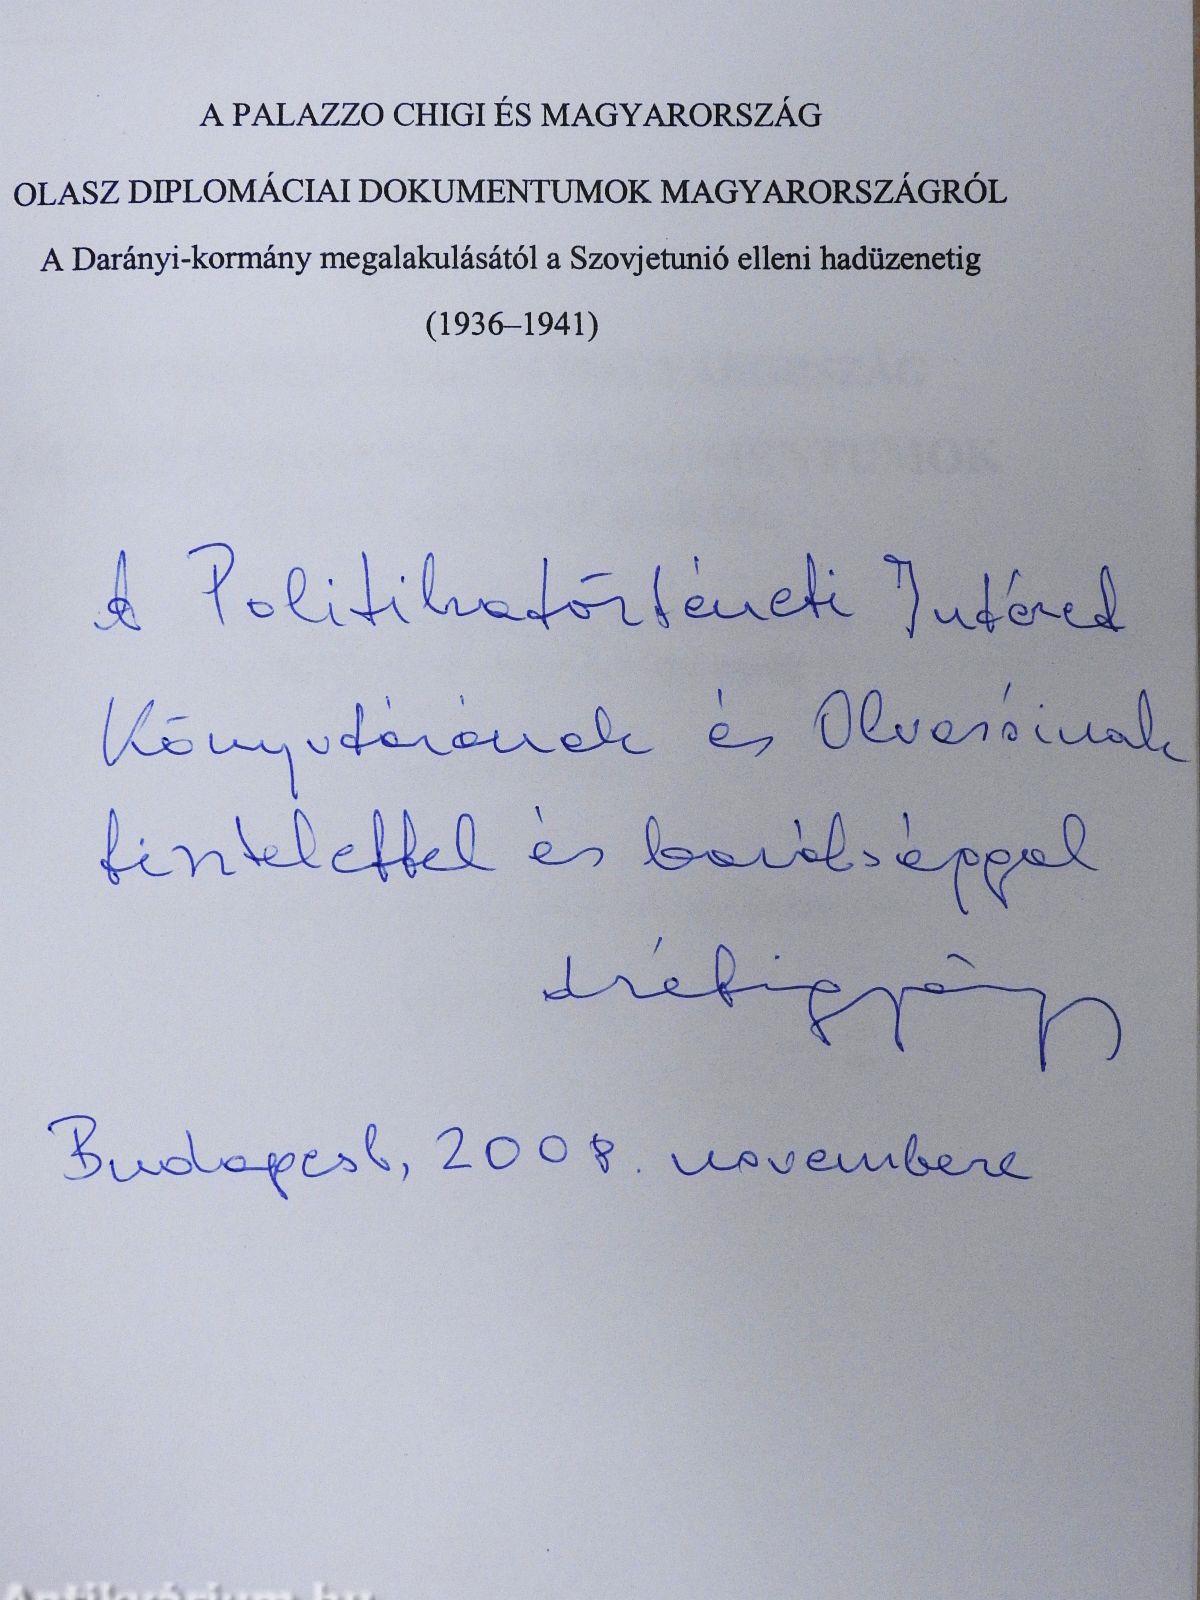 A PALAZZO CHIGI ÉS MAGYARORSZÁG
OLASZ DIPLOMÁCIAI DOKUMENTUMOK MAGYARORSZÁGRÓL
A Darányi-kormány megalakulásától a Szovjetunió elleni hadüzenetig
(1936–1941)
A Politikatörténeti Intézet
Könyvtárának és Olvasóinak
tisztelettel és barátsággal
Budapest, 2008. novembere
Antikvárium.hu